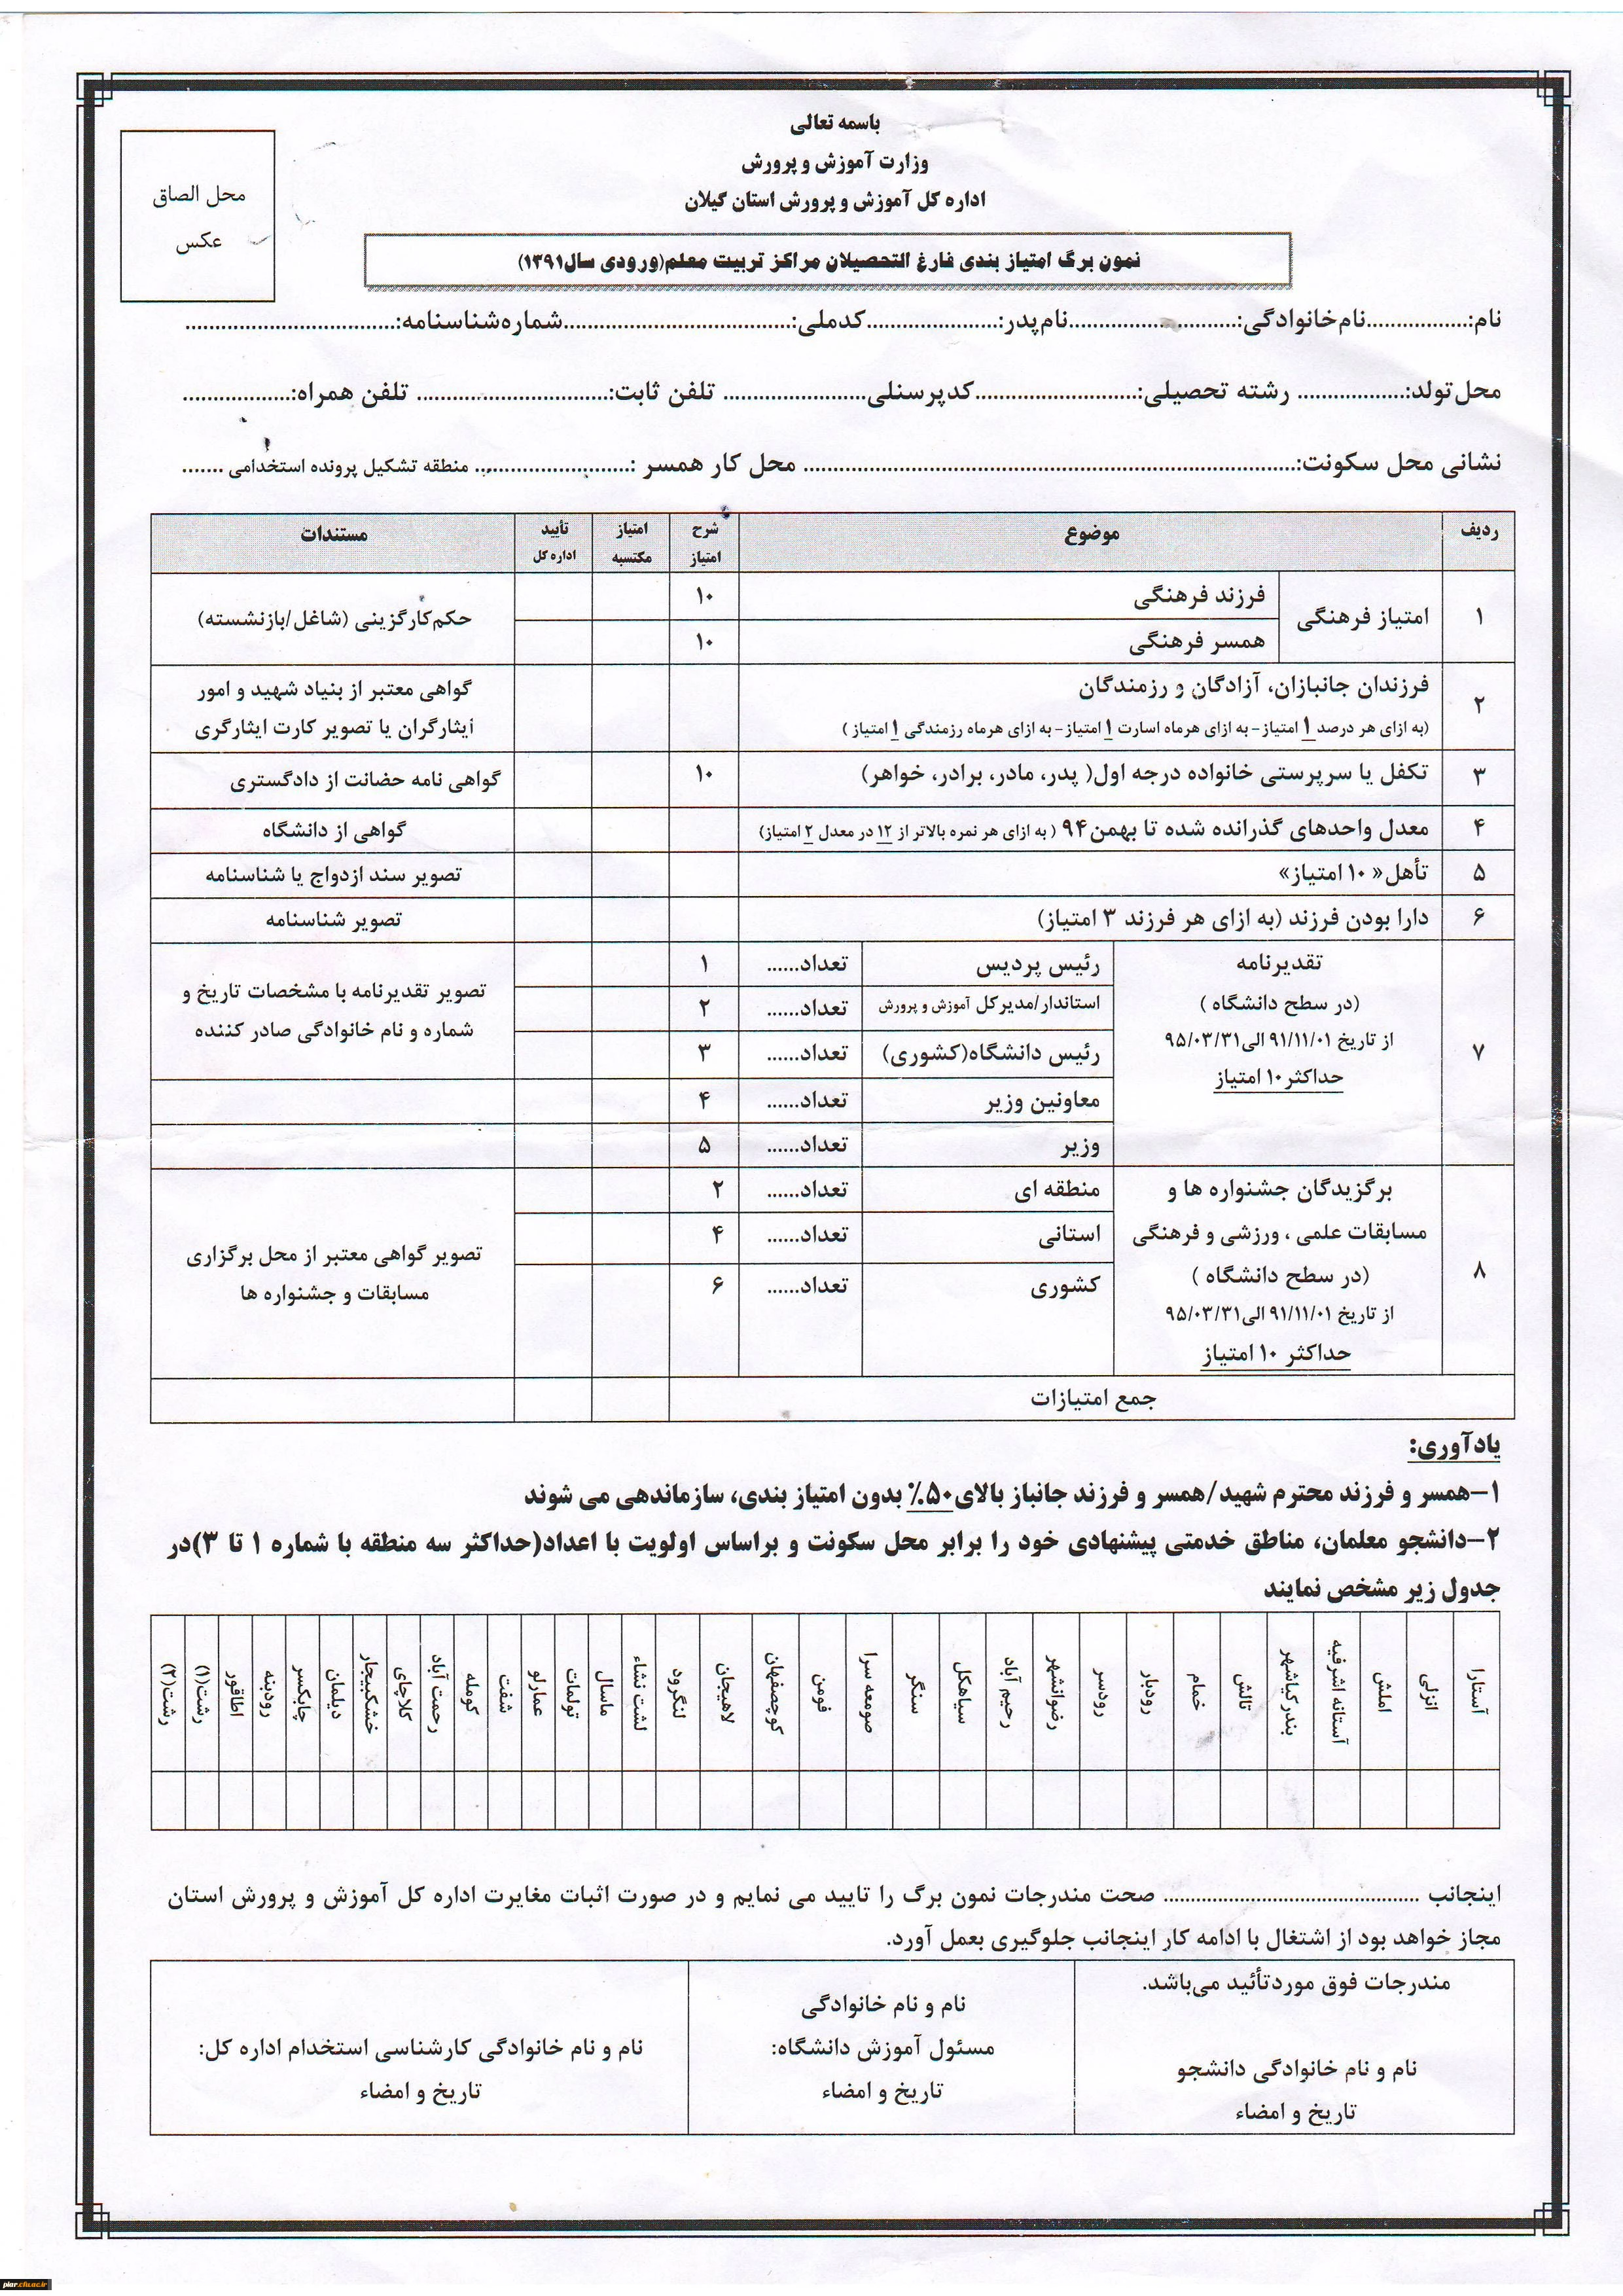 باسمه تعالی
وزارت آموزش و پرورش
اداره کل آموزش و پرورش استان گیلان
محل الصاق
عکس
نمون برگ امتیاز بندی فارغ التحصیلان مراکز تربیت معلم(ورودی سال۱۳۹۱)
نام:.................نام‌خانوادگی:............................نام‌پدر:......................کدملی:......................................شماره‌شناسنامه:...................................
محل‌تولد:.................. رشته تحصیلی:...........................کدپرسنلی........................ تلفن ثابت:................................ تلفن همراه:..................
نشانی محل سکونت:.................................................................................. محل کار همسر :.......................... منطقه تشکیل پرونده استخدامی .......
ردیف موضوع شرح امتیاز امتیاز مکتسبه تأیید اداره کل مستندات
۱ امتیاز فرهنگی فرزند فرهنگی ۱۰ حکم‌کارگزینی (شاغل/بازنشسته)
همسر فرهنگی ۱۰
۲ فرزندان جانبازان، آزادگان و رزمندگان گواهی معتبر از بنیاد شهید و امور
(به ازای هر درصد ۱ امتیاز- به ازای هرماه اسارت ۱ امتیاز- به ازای هرماه رزمندگی ۱ امتیاز ) ایثارگران یا تصویر کارت ایثارگری
۳ تکفل یا سرپرستی خانواده درجه اول( پدر، مادر، برادر، خواهر) ۱۰ گواهی نامه حضانت از دادگستری
۴ معدل واحدهای گذرانده شده تا بهمن۹۴ ( به ازای هر نمره بالاتر از ۱۲ در معدل ۲ امتیاز) گواهی از دانشگاه
۵ تأهل« ۱۰ امتیاز» تصویر سند ازدواج یا شناسنامه
۶ دارا بودن فرزند (به ازای هر فرزند ۳ امتیاز) تصویر شناسنامه
۷ تقدیرنامه
(در سطح دانشگاه )
از تاریخ ۹۱/۱۱/۰۱ الی۹۵/۰۳/۳۱
حداکثر۱۰ امتیاز
رئیس پردیس تعداد...... ۱
استاندار/مدیرکل آموزش و پرورش تعداد...... ۲
رئیس دانشگاه(کشوری) تعداد...... ۳
معاونین وزیر تعداد...... ۴
وزیر تعداد...... ۵
تصویر تقدیرنامه با مشخصات تاریخ و
شماره و نام خانوادگی صادر کننده
۸ برگزیدگان جشنواره ها و
مسابقات علمی ، ورزشی و فرهنگی
(در سطح دانشگاه )
از تاریخ ۹۱/۱۱/۰۱ الی۹۵/۰۳/۳۱
حداکثر ۱۰ امتیاز
منطقه ای تعداد...... ۲
استانی تعداد...... ۴
کشوری تعداد...... ۶
تصویر گواهی معتبر از محل برگزاری
مسابقات و جشنواره ها
جمع امتیازات
یادآوری:
۱-همسر و فرزند محترم شهید/همسر و فرزند جانباز بالای۵۰٪ بدون امتیاز بندی، سازماندهی می شوند
۲-دانشجو معلمان، مناطق خدمتی پیشنهادی خود را برابر محل سکونت و براساس اولویت با اعداد(حداکثر سه منطقه با شماره ۱ تا ۳)در
جدول زیر مشخص نمایند
آستارا
انزلی
املش
آستانه اشرفیه
بندرکیاشهر
تالش
خمام
رودبار
رودسر
رضوانشهر
رحیم آباد
سیاهکل
سنگر
صومعه سرا
فومن
کوچصفهان
لاهیجان
لنگرود
لشت نشاء
ماسال
تولمات
عمارلو
شفت
کومله
رحمت آباد
کلاچای
خشکبیجار
دیلمان
چابکسر
رودبنه
اطاقور
رشت(۱)
رشت(۲)
اینجانب ........................................... صحت مندرجات نمون برگ را تایید می نمایم و در صورت اثبات مغایرت اداره کل آموزش و پرورش استان
مجاز خواهد بود از اشتغال با ادامه کار اینجانب جلوگیری بعمل آورد.
مندرجات فوق موردتأئید می‌باشد.
نام و نام خانوادگی دانشجو
تاریخ و امضاء
نام و نام خانوادگی
مسئول آموزش دانشگاه:
تاریخ و امضاء
نام و نام خانوادگی کارشناسی استخدام اداره کل:
تاریخ و امضاء
piar.cfu.ac.ir